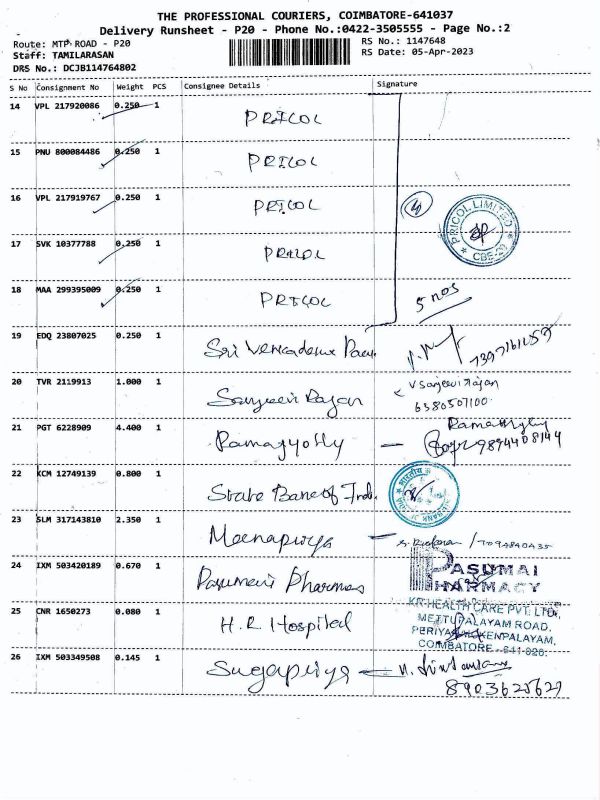 THE PROFESSIONAL COURIERS, COIMBATORE-641037
Delivery Runsheet - P20 - Phone No.:0422-3505555 - Page No.:2
Route: MTP ROAD - P20
RS No.: 1147648
Staff: TAMILARASAN
RS Date: 05-Apr-2023
DRS No.: DCJB114764802
S No Consignment No Weight PCS Consignee Details Signature
14 VPL 217920086 0.250 1 PRICOL
15 PNU 800084486 0.250 1 PRICOL
16 VPL 217919767 0.250 1 PRICOL
PRICOL LIMITED
CBE-20
17 SVK 10377788 0.250 1 PRICOL
18 MAA 299395009 0.250 1 PRICOL 5 nos
19 EDQ 23807025 0.250 1 Sri
20 TVR 2119913 1.000 1 Sanjeevi Rajan V Sanjeevi Rajan
6380507100
21 PGT 6228909 4.400 1 Ramajyothy 9894408144
22 KCM 12749139 0.800 1 State Bank of Ind.
23 SLM 317143810 2.350 1 Meenapriya
24 IXM 503420189 0.670 1 Pasumai Pharmas
PASUMAI
PHARMACY
KR HEALTH CARE PVT. LTD.
25 CNR 1650273 0.080 1 H.R Hospital
METTUPALAYAM ROAD,
COIMBATORE - 641 020.
26 IXM 503349508 0.145 1 Sugapriya
8903625627